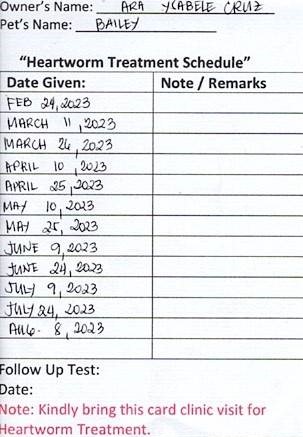 Owner's Name: ARA YCABELE CRUZ
Pet's Name: BAILEY
"Heartworm Treatment Schedule"
Date Given: Note / Remarks
FEB 24, 2023
MARCH 11, 2023
MARCH 26, 2023
APRIL 10, 2023
APRIL 25, 2023
MAY 10, 2023
MAY 25, 2023
JUNE 9, 2023
JUNE 24, 2023
JULY 9, 2023
JULY 24, 2023
AUG. 8, 2023
Follow Up Test:
Date:
Note: Kindly bring this card clinic visit for
Heartworm Treatment.